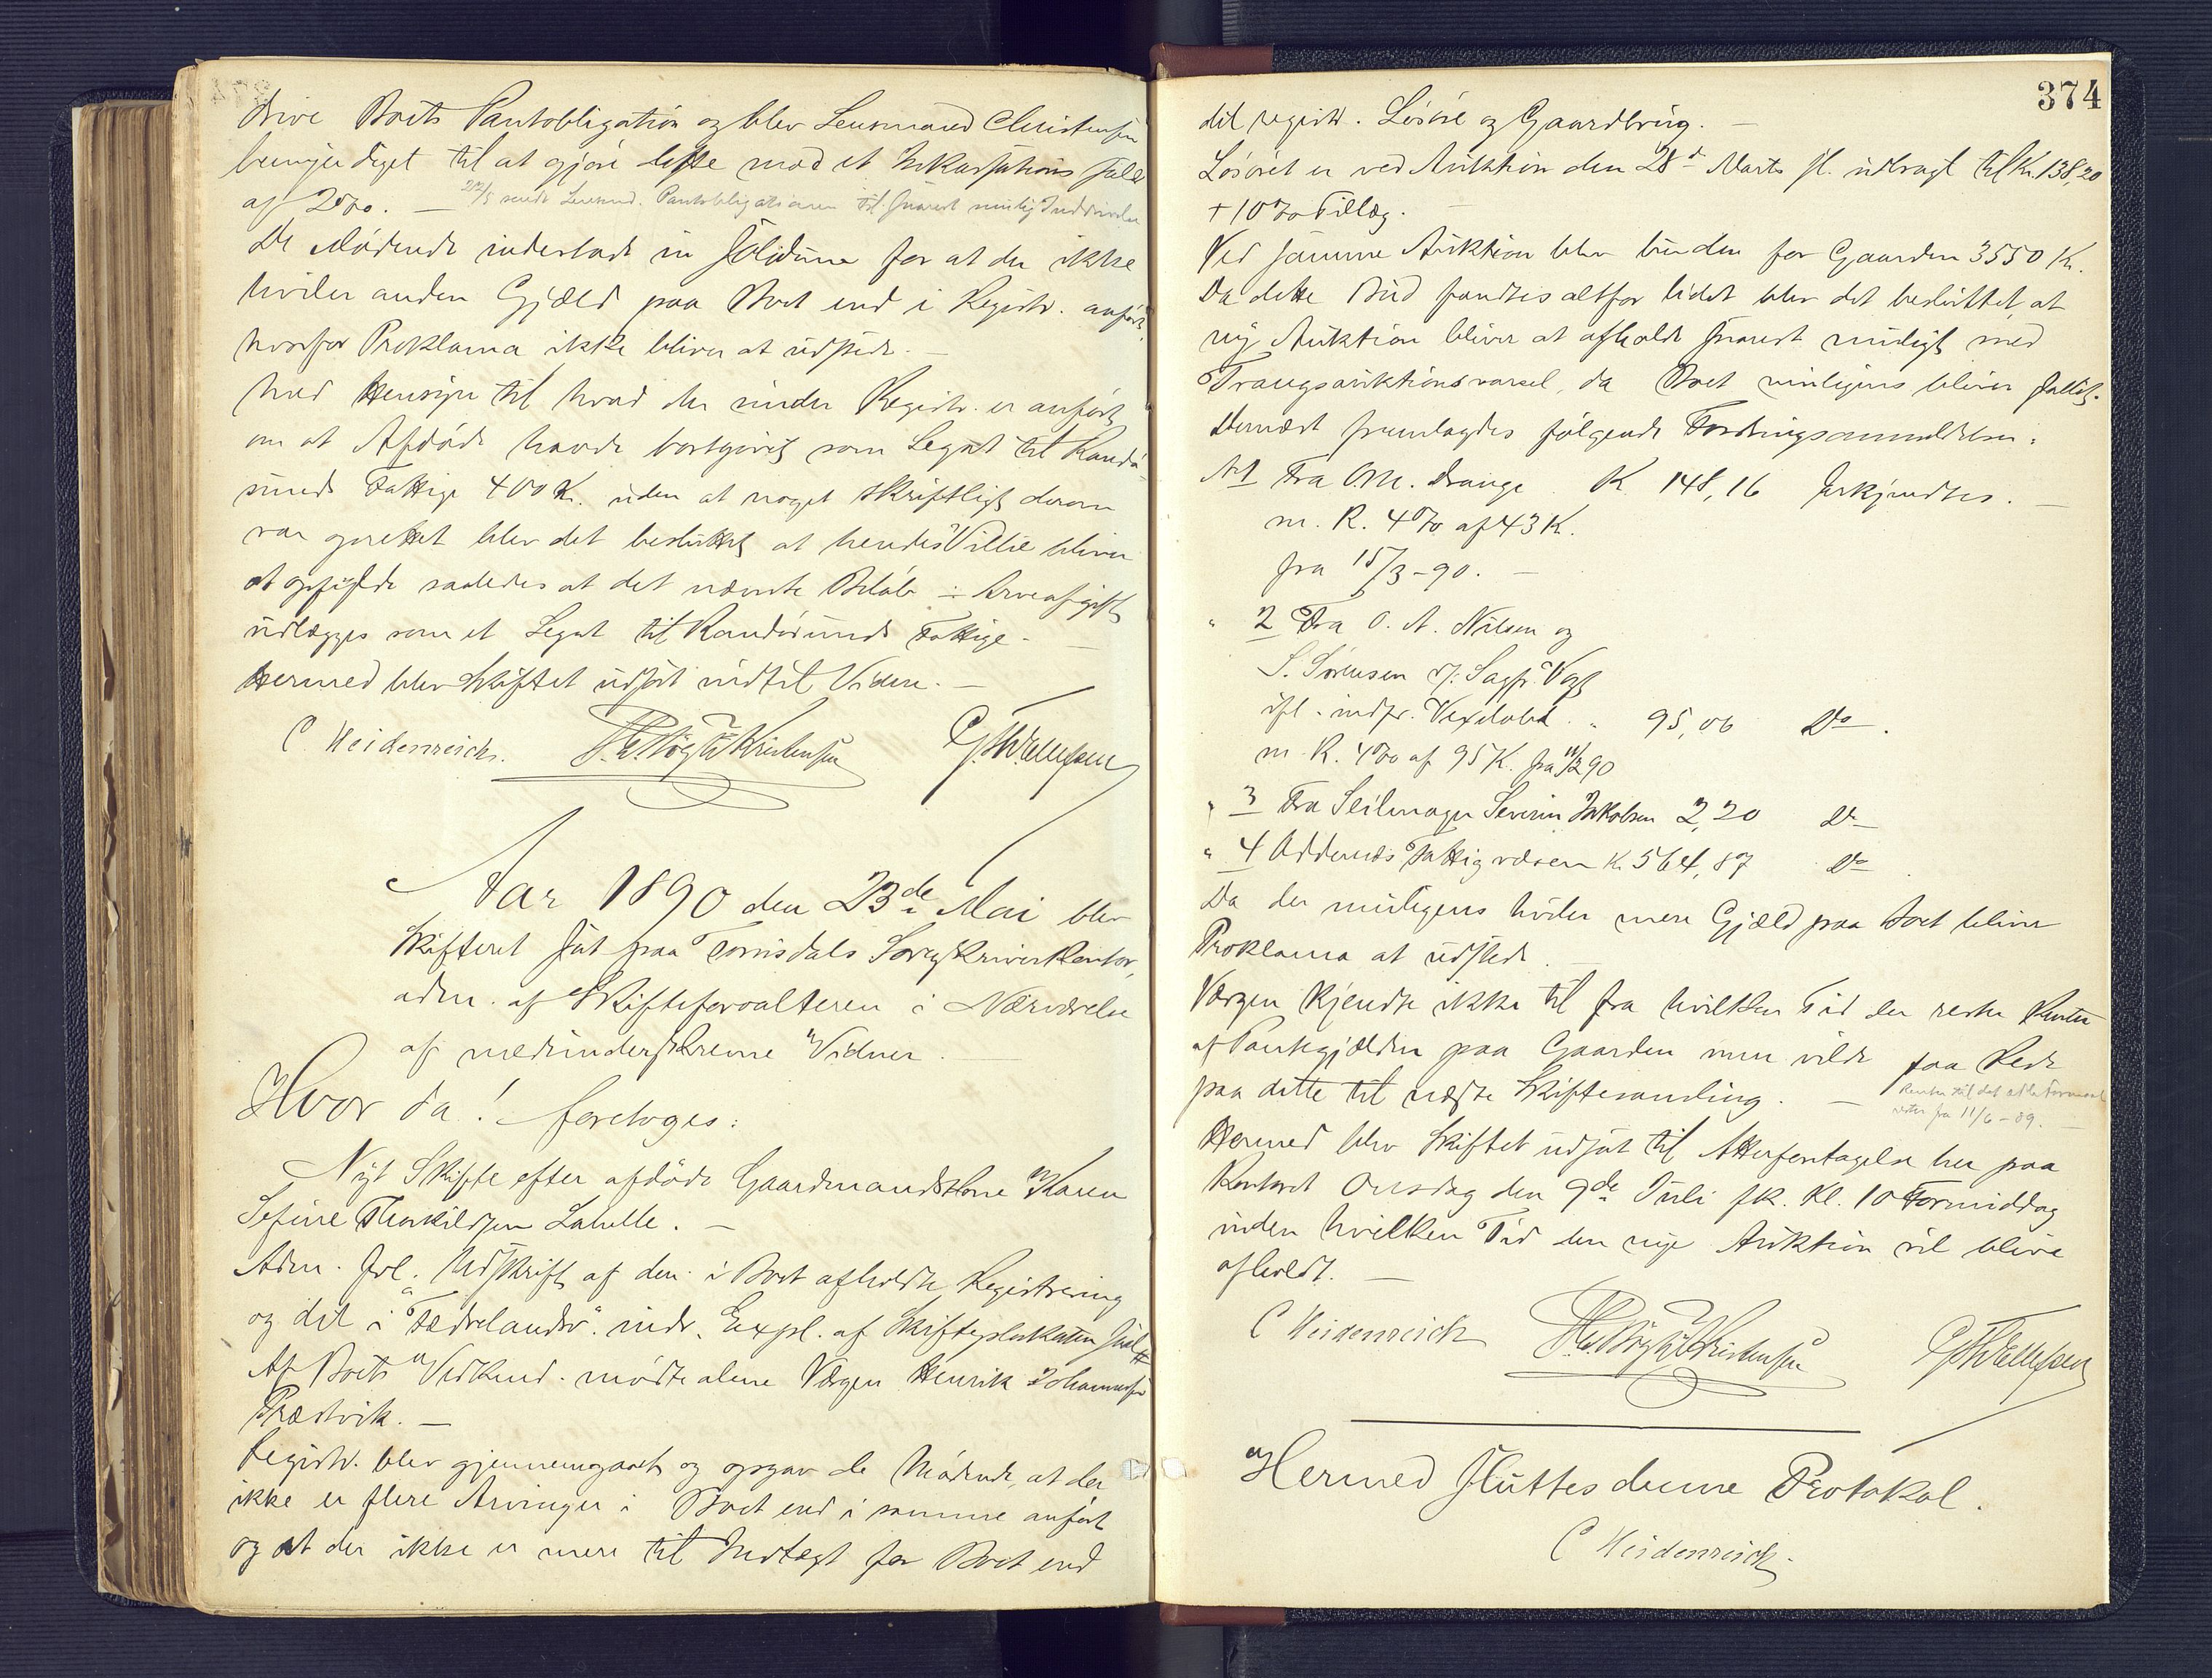 drive Boets Pantobligation og blev Lensmand Christensen
bemyndiget til at gjøre dette mod et Inkassations Salær
af 2%. — 22/5 sendt Lensmd. Pantobligationen til snarest mulig Inddrivelse
De Mødende indestode in solidum for at der ikke
hviler anden Gjæld paa Boet end i Registr. anført
hvorfor Proklama ikke bliver at udstede. —
Med Hensyn til hvad der under Registr. er anført
om at Afdøde havde bortgivet som Legat til Randø-
sunds Fattige 400 Kr. uden at noget skriftligt derom
var oprettet blev det besluttet at hendes Villie bliver
at opfylde saaledes at det nævnte Beløb ÷ Arveafgift
udlægges som et Legat til Randøsunds Fattige. —
Hermed blev Skiftet udsat indtil Videre. —
C Weidenreich. Kristensen G. Tellefsen
Aar 1890 den 23de Mai blev
Skifteret sat paa Torrisdals Sorenskriverkontor,
adm. af Skifteforvalteren i Nærværelse
af medunderskrevne Vidner. —
Hvor da! foretoges:
Nyt Skifte efter afdøde Gaardmandskone Karen
Sefine Thorkildsen Labelle. —
Adm. frl. Udskrift af den i Boet afholdte Registrering
og det i "Fædrelandsv". indr. Expl. af Skifteplakaten
Af Boets Vedkend. mødte alene Værgen Henrik Johannesen
Præstvik. —
Registr. blev gjennemgaaet og opgav de Mødende, at der
ikke er flere Arvinger i Boet end i samme anført
og at der ikke er mere til Indtægt for Boet end
374
det registr. Løsøre og Gaardbrug. —
Løsøret er ved Auktion den 28d Marts sl. udbragt til Kr. 138,20
+ 10% Tillæg. —
Ved samme Auktion blev buden for Gaarden 3550 Kr.
Da dette Bud fandtes altfor lidet blev det besluttet at
ny Auktion bliver at afholde snarest muligt med
Tvangsauktionsvarsel, da Boet muligens bliver fallit.
Dernæst fremlagdes følgende Fordringsanmeldelser:
No 1 Fra O. M. Drange K 148,16 Erkjendtes. —
m. R. 4% af 43 K.
fra 15/3-90. —
" 2 Fra O. A. Nilsen og
S. Sørensen v/ Sagfr. Vogt
ifl. indfr. Vexelobl. " 95,06 Do .
m. R. 4% af 95 K. fra 11/2 90
" 3 Fra Seilmager Severin Jakobsen 2,20 Do
" 4 Oddernes Fattigvæsen K 564,87 Do .
Da der muligens hviler mere Gjæld paa Boet bliver
Proklama at udstede. —
Værgen kjendte ikke til fra hvilken Tid der rester Renter
af Pantegjælden paa Gaarden men vilde faa Rede
paa dette til næste Skiftesamling. — Renter til
rester fra 11/6-89. —
Hermed blev Skiftet udsat til Atterforetagelse her paa
Kontoret Onsdag den 9de Juli fk. Kl. 10 Formiddag
inden hvilken Tid den nye Auktion vil blive
afholdt. —
C Weidenreich Kristensen G. Tellefsen
Hermed sluttes denne Protokol.
C Weidenreich.